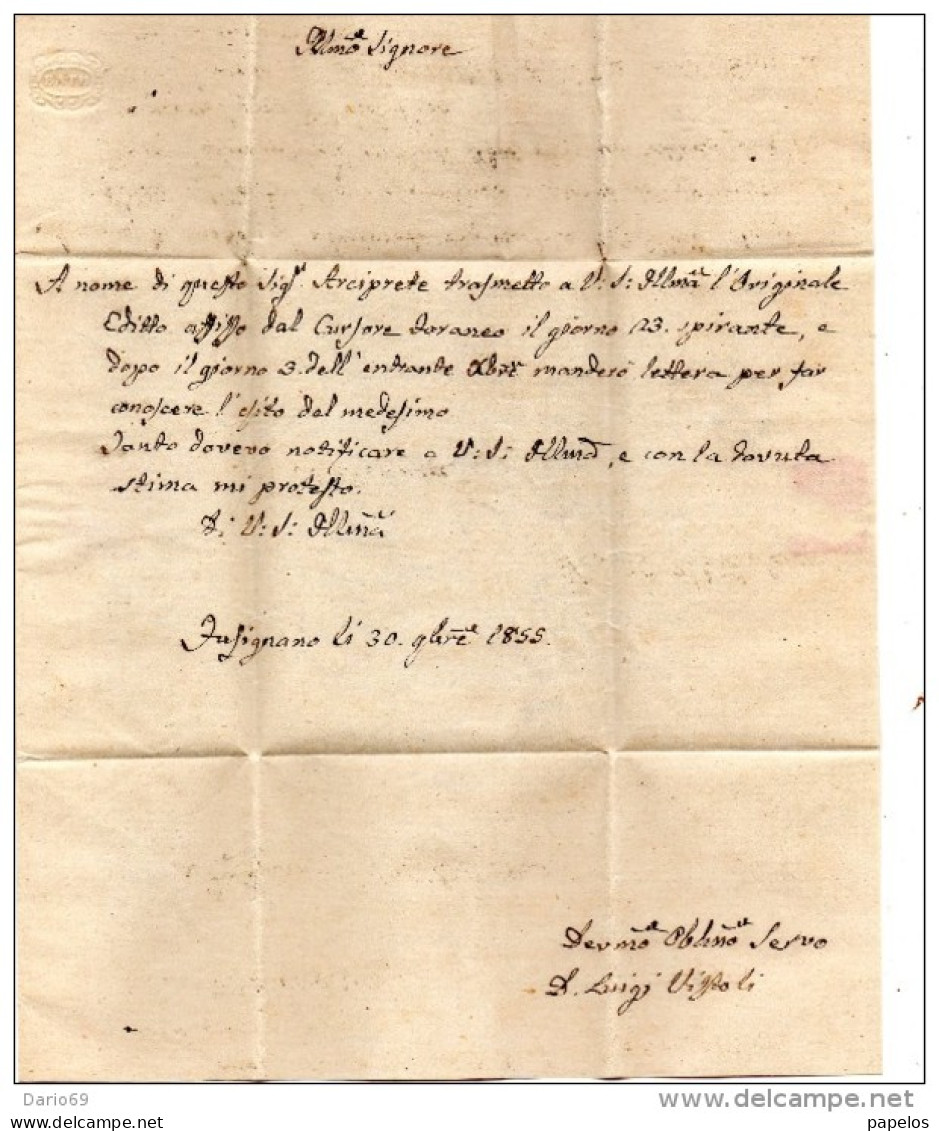 Illmo Signore
A nome di questo Sigr. Arciprete trasmetto a V: S: Illma l'Originale
Editto affisso dal Cursore foraneo il giorno 23. spirante, e
dopo il giorno 3. dell'entrante Xbre manderò lettera per far
conoscere l'esito del medesimo
Tanto dovevo notificare a V: S: Illma, e con la dovuta
stima mi protesto.
Di V: S: Illma
Fusignano li 30. 9bre 1855.
Devmo Oblmo Servo
D. Luigi
Dario69
www.delcampe.net
papelos